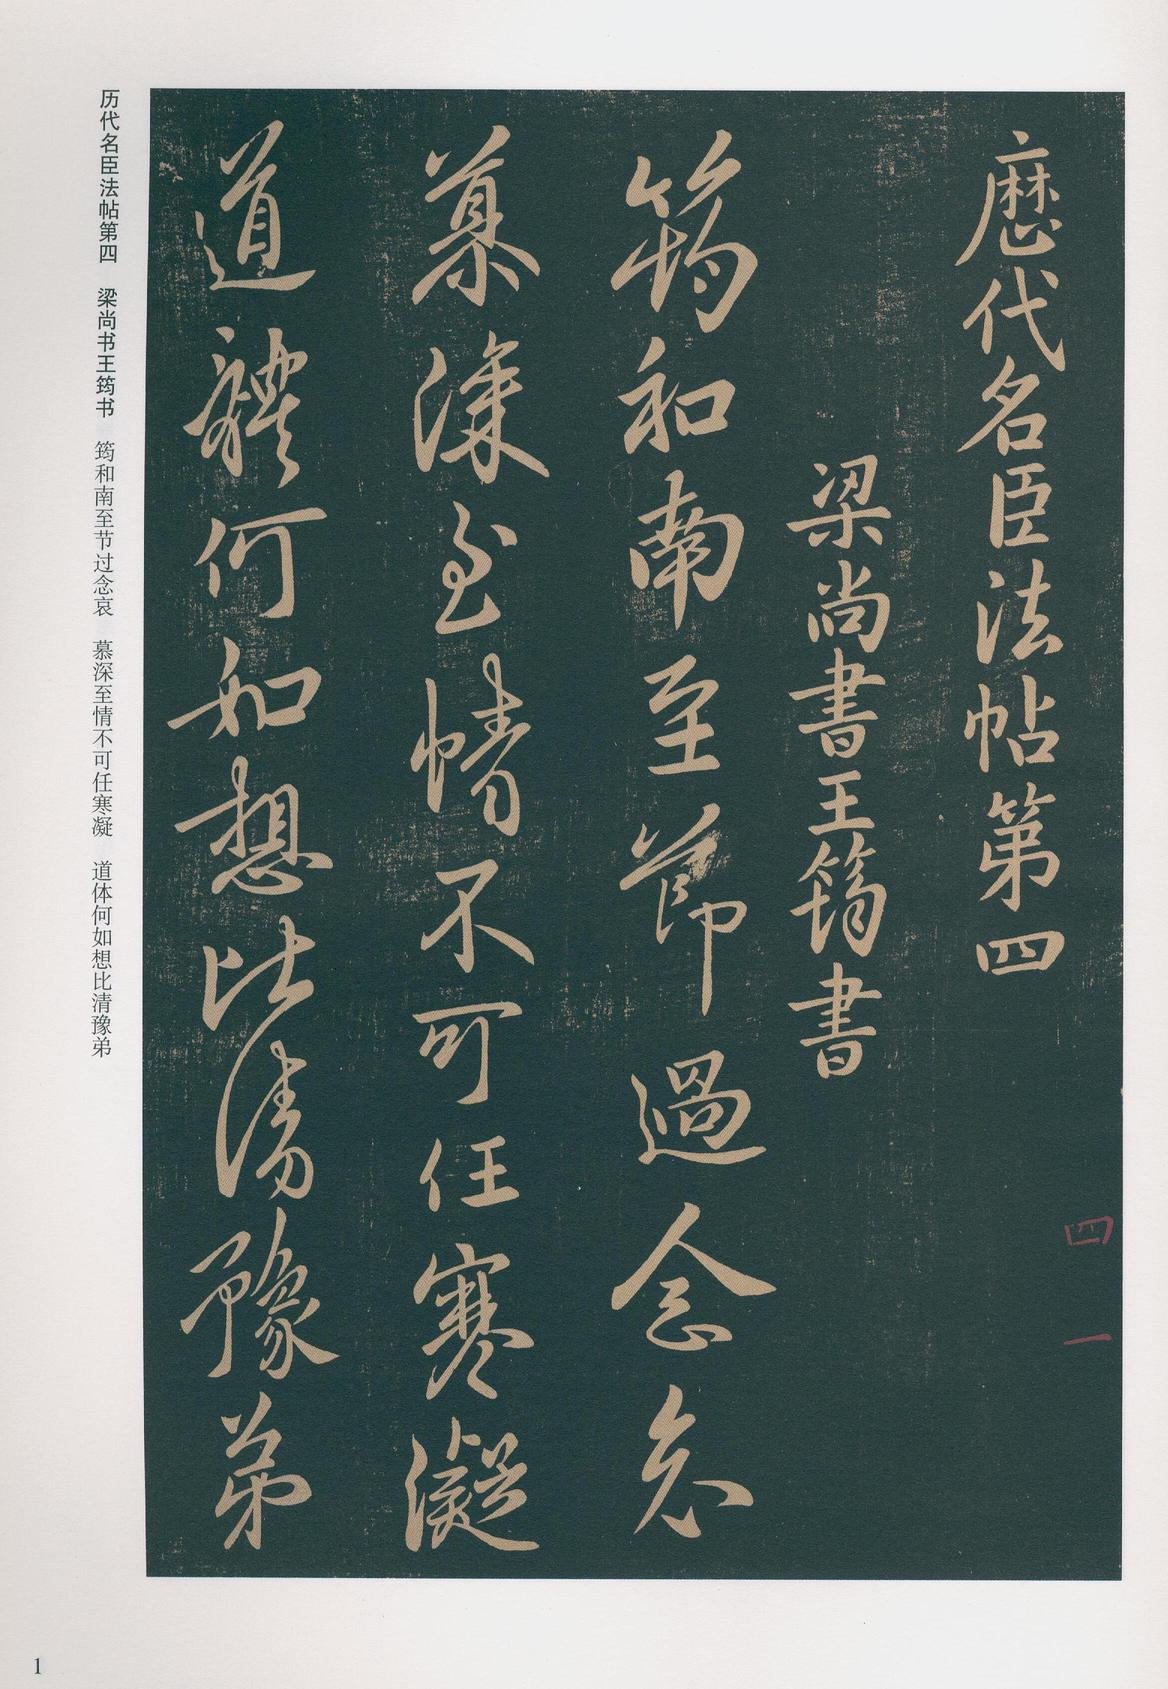 歷代名臣法帖第四
梁尚書王筠書
筠和南至節過念哀
慕深至情不可任寒凝
道體何如想比清豫弟
四
一
历代名臣法帖第四　梁尚书王筠书　筠和南至节过念哀　慕深至情不可任寒凝　道体何如想比清豫弟
1